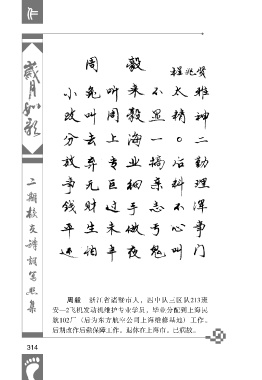 周 毅
小鬼叫来不太雅
改叫周毅显精神
分去上海一〇二
放弃专业搞后勤
事无巨细亲料理
钱财过手志不浑
平生未做亏心事
还怕半夜鬼叫门
周毅 浙江省诸暨市人，四中队三区队213班
安—2飞机发动机维护专业学员，毕业分配到上海民
航102厂（后为东方航空公司上海维修基地）工作。
后期改作后勤保障工作。退休在上海市。已病故。
歲月如歌
二期校友诗词写照集
314